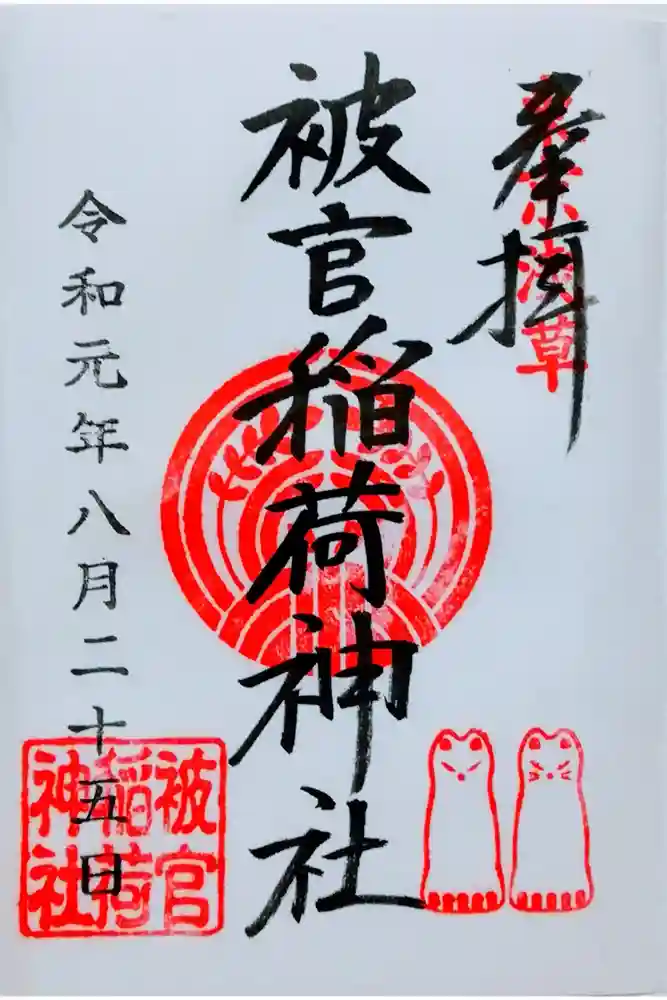 奉拝
東京浅草
被官稲荷神社
令和元年八月二十五日
被官
稲荷
神社